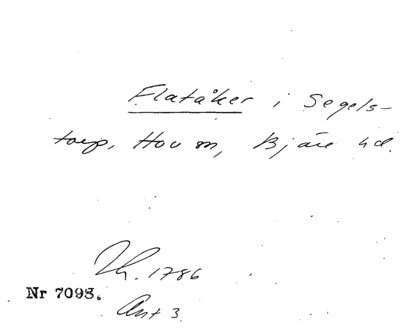 Flatåker i Segels-
torp, Hov sn, Bjäre hd.
Lh. 1786
Nr 7098.
Ant 3